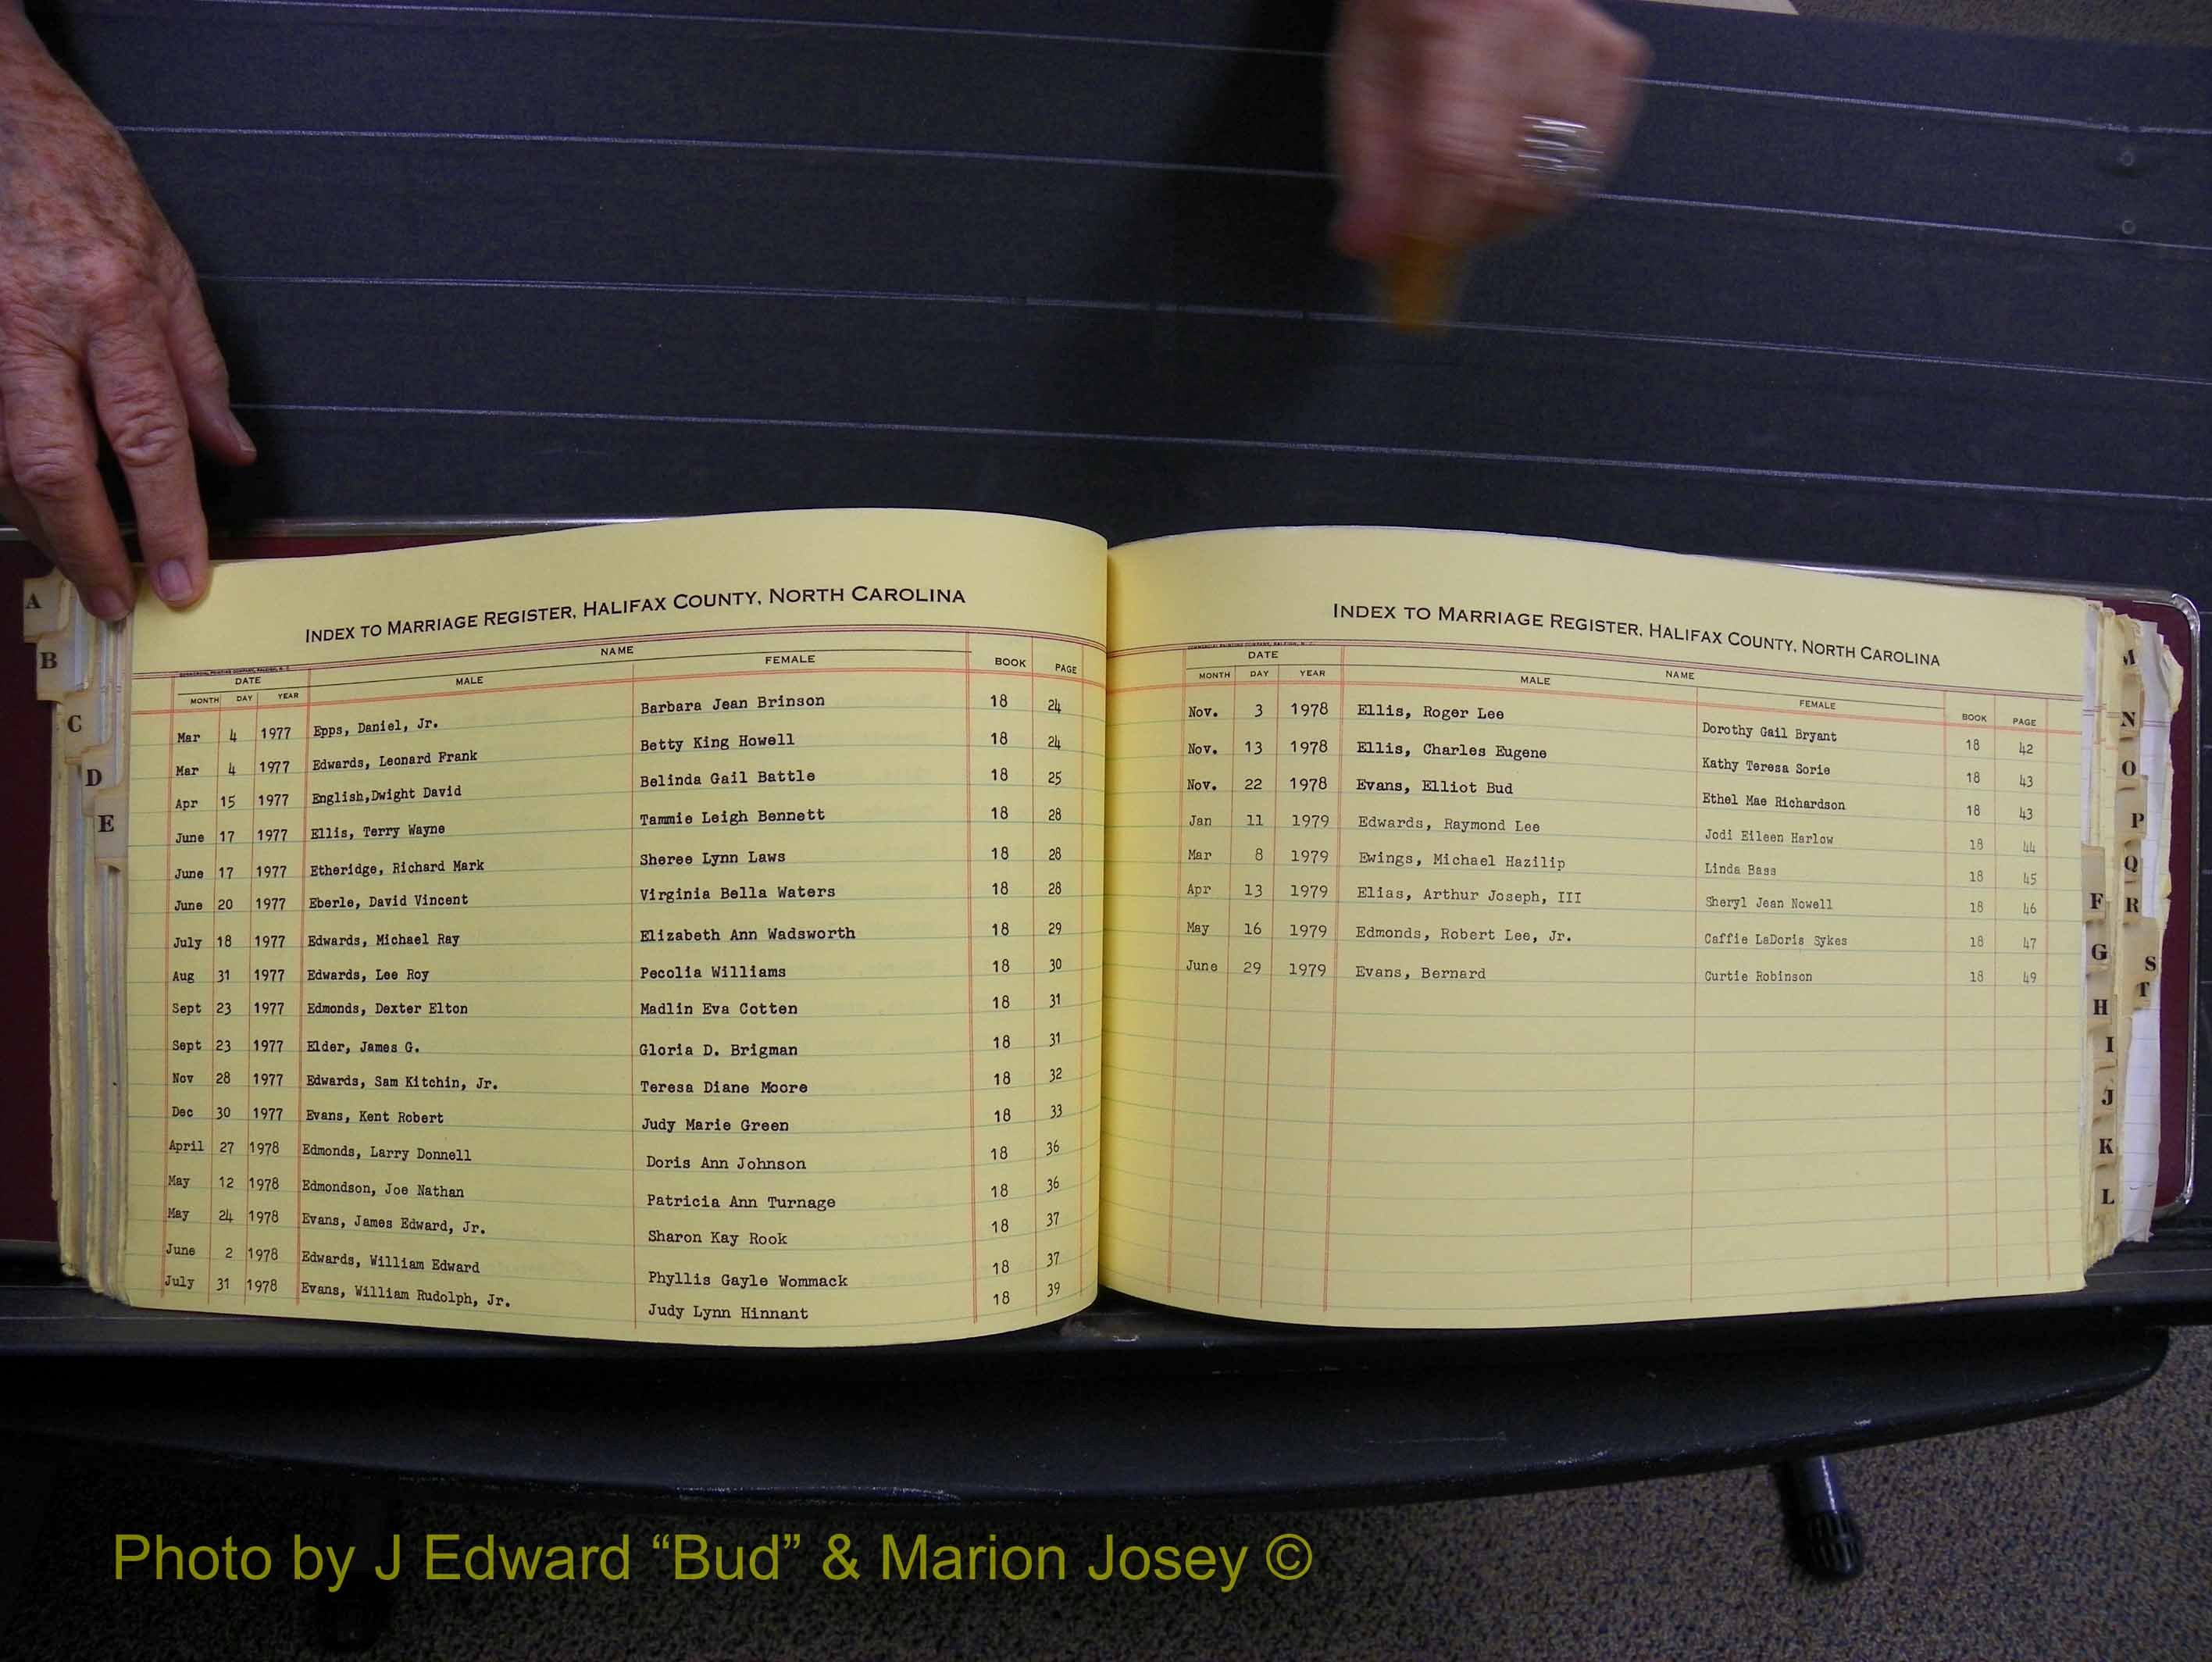 INDEX TO MARRIAGE REGISTER, HALIFAX COUNTY, NORTH CAROLINA
DATE NAME
MONTH DAY YEAR MALE FEMALE BOOK PAGE
Mar 4 1977 Epps, Daniel, Jr. Barbara Jean Brinson 18 24
Mar 4 1977 Edwards, Leonard Frank Betty King Howell 18 24
Apr 15 1977 English,Dwight David Belinda Gail Battle 18 25
June 17 1977 Ellis, Terry Wayne Tammie Leigh Bennett 18 28
June 17 1977 Etheridge, Richard Mark Sheree Lynn Laws 18 28
June 20 1977 Eberle, David Vincent Virginia Bella Waters 18 28
July 18 1977 Edwards, Michael Ray Elizabeth Ann Wadsworth 18 29
Aug 31 1977 Edwards, Lee Roy Pecolia Williams 18 30
Sept 23 1977 Edmonds, Dexter Elton Madlin Eva Cotten 18 31
Sept 23 1977 Elder, James G. Gloria D. Brigman 18 31
Nov 28 1977 Edwards, Sam Kitchin, Jr. Teresa Diane Moore 18 32
Dec 30 1977 Evans, Kent Robert Judy Marie Green 18 33
April 27 1978 Edmonds, Larry Donnell Doris Ann Johnson 18 36
May 12 1978 Edmondson, Joe Nathan Patricia Ann Turnage 18 36
May 24 1978 Evans, James Edward, Jr. Sharon Kay Rook 18 37
June 2 1978 Edwards, William Edward Phyllis Gayle Wommack 18 37
July 31 1978 Evans, William Rudolph, Jr. Judy Lynn Hinnant 18 39
A
B
C
D
E
INDEX TO MARRIAGE REGISTER, HALIFAX COUNTY, NORTH CAROLINA
DATE NAME
MONTH DAY YEAR MALE FEMALE BOOK PAGE
Nov. 3 1978 Ellis, Roger Lee Dorothy Gail Bryant 18 42
Nov. 13 1978 Ellis, Charles Eugene Kathy Teresa Sorie 18 43
Nov. 22 1978 Evans, Elliot Bud Ethel Mae Richardson 18 43
Jan 11 1979 Edwards, Raymond Lee Jodi Eileen Harlow 18 44
Mar 8 1979 Ewings, Michael Hazilip Linda Bass 18 45
Apr 13 1979 Elias, Arthur Joseph, III Sheryl Jean Nowell 18 46
May 16 1979 Edmonds, Robert Lee, Jr. Caffie LaDoris Sykes 18 47
June 29 1979 Evans, Bernard Curtie Robinson 18 49
F
G
H
I
J
K
L
M
N
O
P
Q
R
S
T
Photo by J Edward “Bud” & Marion Josey ©